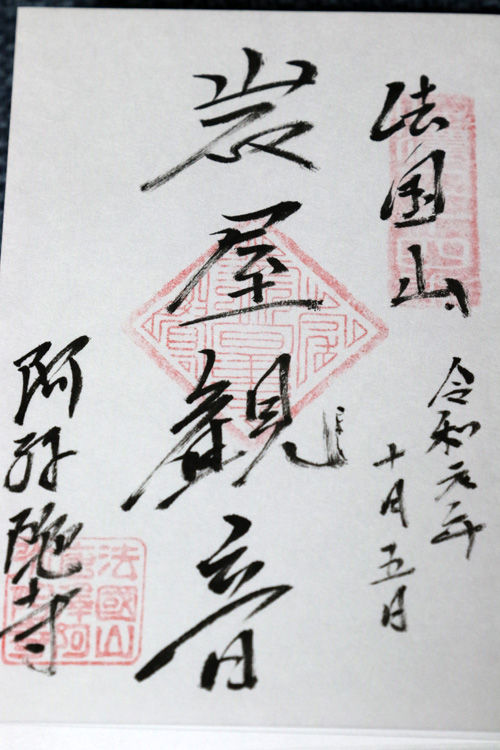 法国山
令和元年
十月五日
岩屋観音
阿弥陀寺
法國山